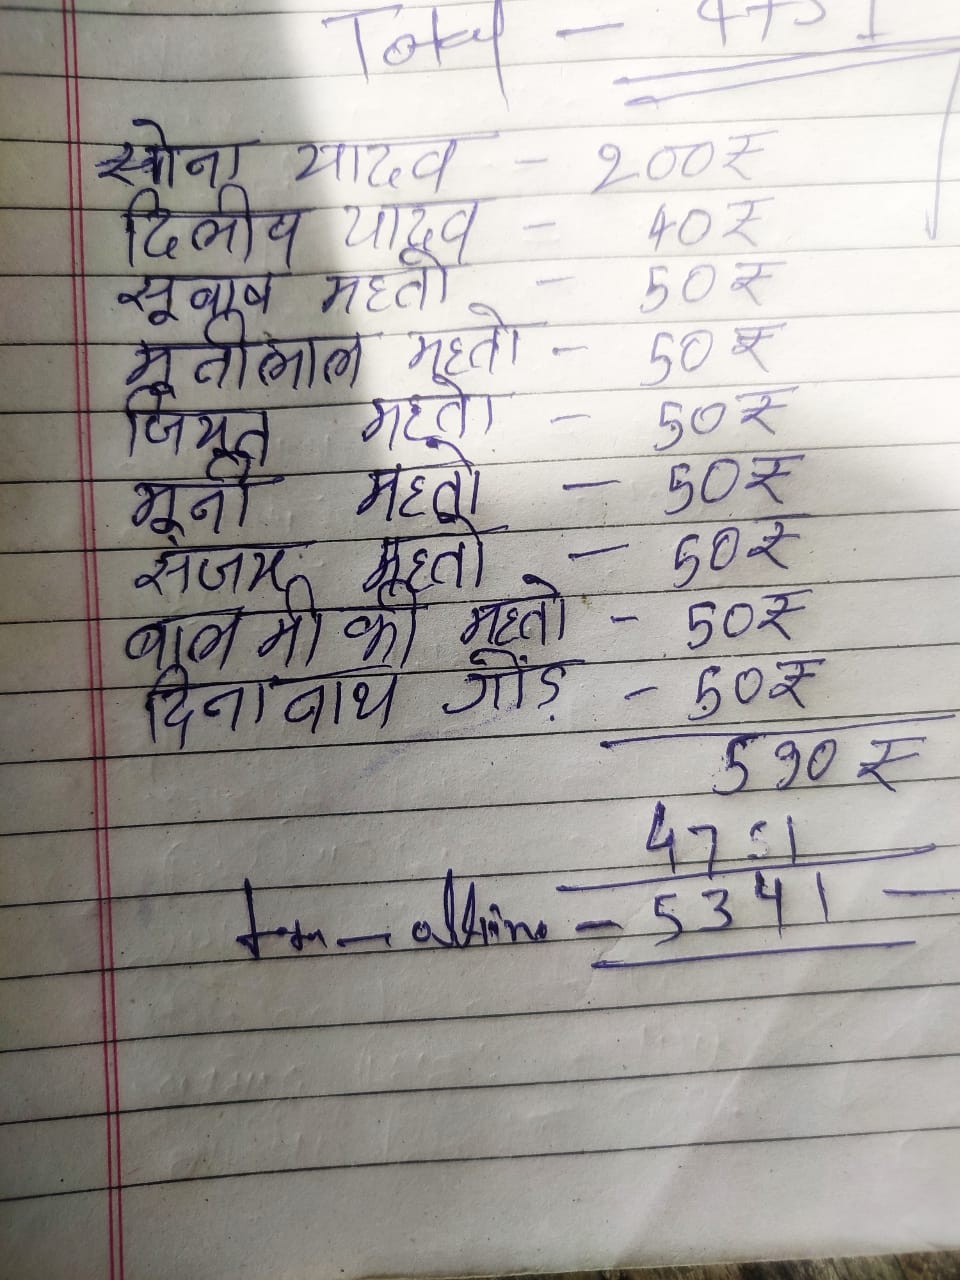 Total - 4751
सोना यादव - 200₹
दिलीप यादव - 40₹
सूबाष महतो - 50₹
मूतीलाल महतो - 50₹
जिमूत महतो - 50₹
मूनी महतो - 50₹
संजय महतो - 50₹
बालमीकी महतो - 50₹
दिनानाथ गोंड़ - 50₹
590₹
4751
- 5341 -